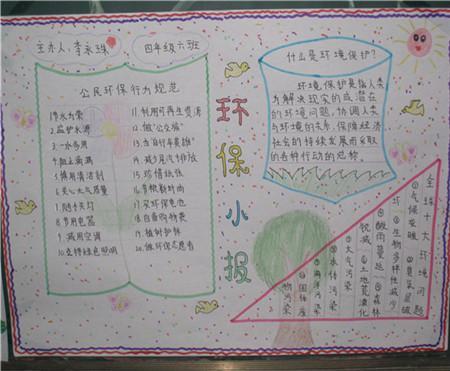 主办人：李永珠
四年级六班
公民环保行为规范
1.节水为荣
2.监护水源
3.一水多用
4.阻止滴漏
5.慎用清洁剂
6.关心大气质量
7.随手关灯
8.节用电器
9.减用空调
10.支持绿色照明
11.利用可再生资源
12.做"公交族"
13.当"自行车英雄"
14.减少尾气排放
15.珍惜纸张
16.
17.买环保电池
18.自备购物袋
19.植树护林
20.做环保志愿者
环保小报
什么是环境保护？
环境保护是指人类
为解决现实的或潜在
的环境问题，协调人类
与环境的关系，保障经济
社会的持续发展而采取
的各种行动的总称。
全球十大环境问题
①气候变暖 ②臭氧层破
坏 ③生物多样性减少
④酸雨蔓延 ⑤森林
锐减 ⑥土地荒漠化
⑦大气污染
⑧水体污染
⑨海洋污染
⑩固体废
物污染